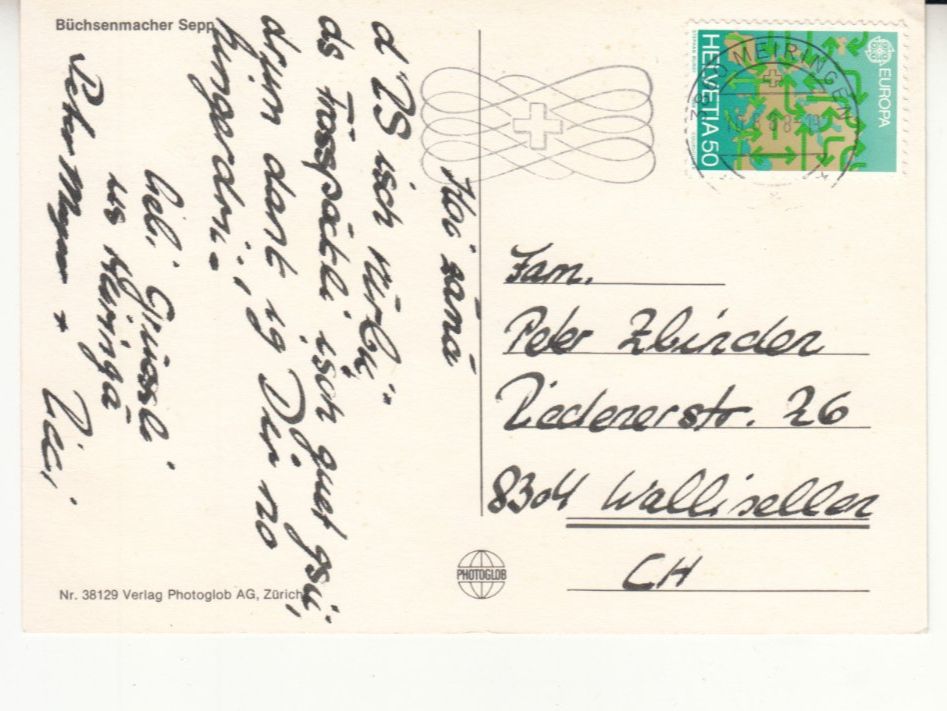 Büchsenmacher Sepp
Hoi zäma
d'DS isch vürbii"
ds Frässpäckli isch guet gsii,
drum dank ig Dir no
hingerdrii.
Liebi Grüessli
us Meiringä
Peter + Vicci
HELVETIA 50
EUROPA
MEIRINGEN
Fam.
Peter Zbinden
Riedenerstr. 26
8304 Wallisellen
CH
PHOTOGLOB
Nr. 38129 Verlag Photoglob AG, Zürich